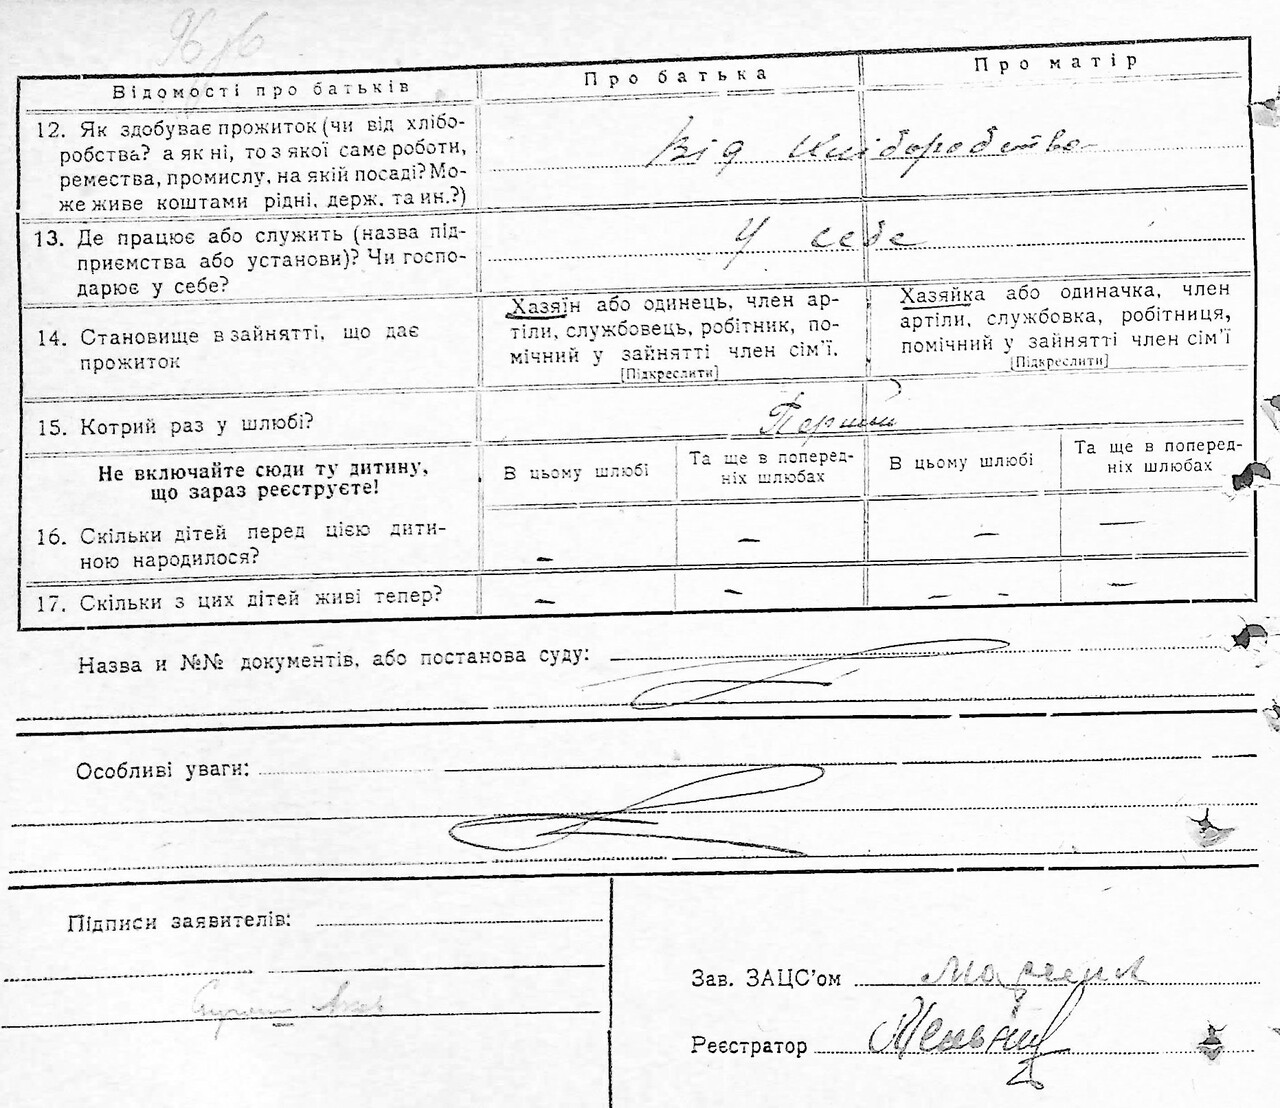 Відомості про батьків Про батька Про матір
12. Як здобуває прожиток (чи від хлібо-
робства? а як ні, то з якої саме роботи,
ремества, промислу, на якій посаді? Мо-
же живе коштами рідні, держ. та ин.?)
Від хліборобства
13. Де працює або служить (назва під-
приємства або установи)? Чи госпо-
дарює у себе?
У себе
14. Становище в зайнятті, що дає
прожиток
Хазяїн або одинець, член ар-
тіли, службовець, робітник, по-
мічний у зайнятті член сім'ї.
[Підкреслити]
Хазяйка або одиначка, член
артіли, службовка, робітниця,
помічний у зайнятті член сім'ї
[Підкреслити]
15. Котрий раз у шлюбі?
Перший
Не включайте сюди ту дитину,
що зараз реєструєте!
В цьому шлюбі
Та ще в поперед-
ніх шлюбах
В цьому шлюбі
Та ще в поперед-
ніх шлюбах
16. Скільки дітей перед цією дити-
ною народилося?
— — — —
17. Скільки з цих дітей живі тепер?
— — — - —
Назва и №№ документів, або постанова суду:
Особливі уваги:
Підписи заявителів:
Зав. ЗАЦС'ом
Реєстратор Мельник